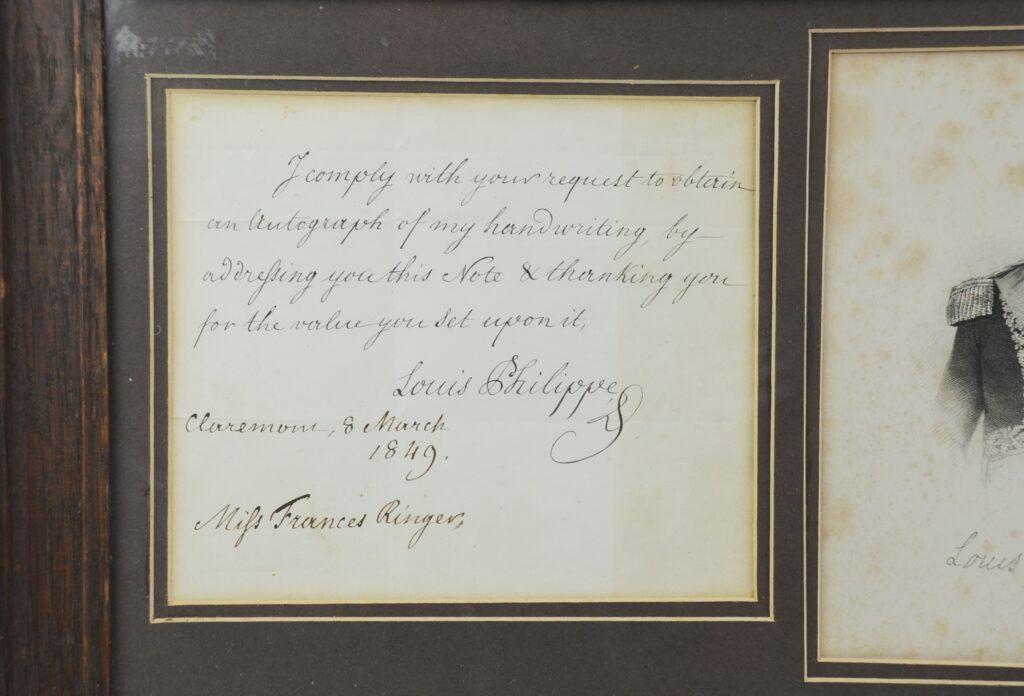 I comply with your request to obtain
an Autograph of my handwriting, by
addreſsing you this Note & thanking you
for the value you set upon it,
Louis Philippe
Claremont, 8 March
1849.
Miſs Frances Ringer,
Louis